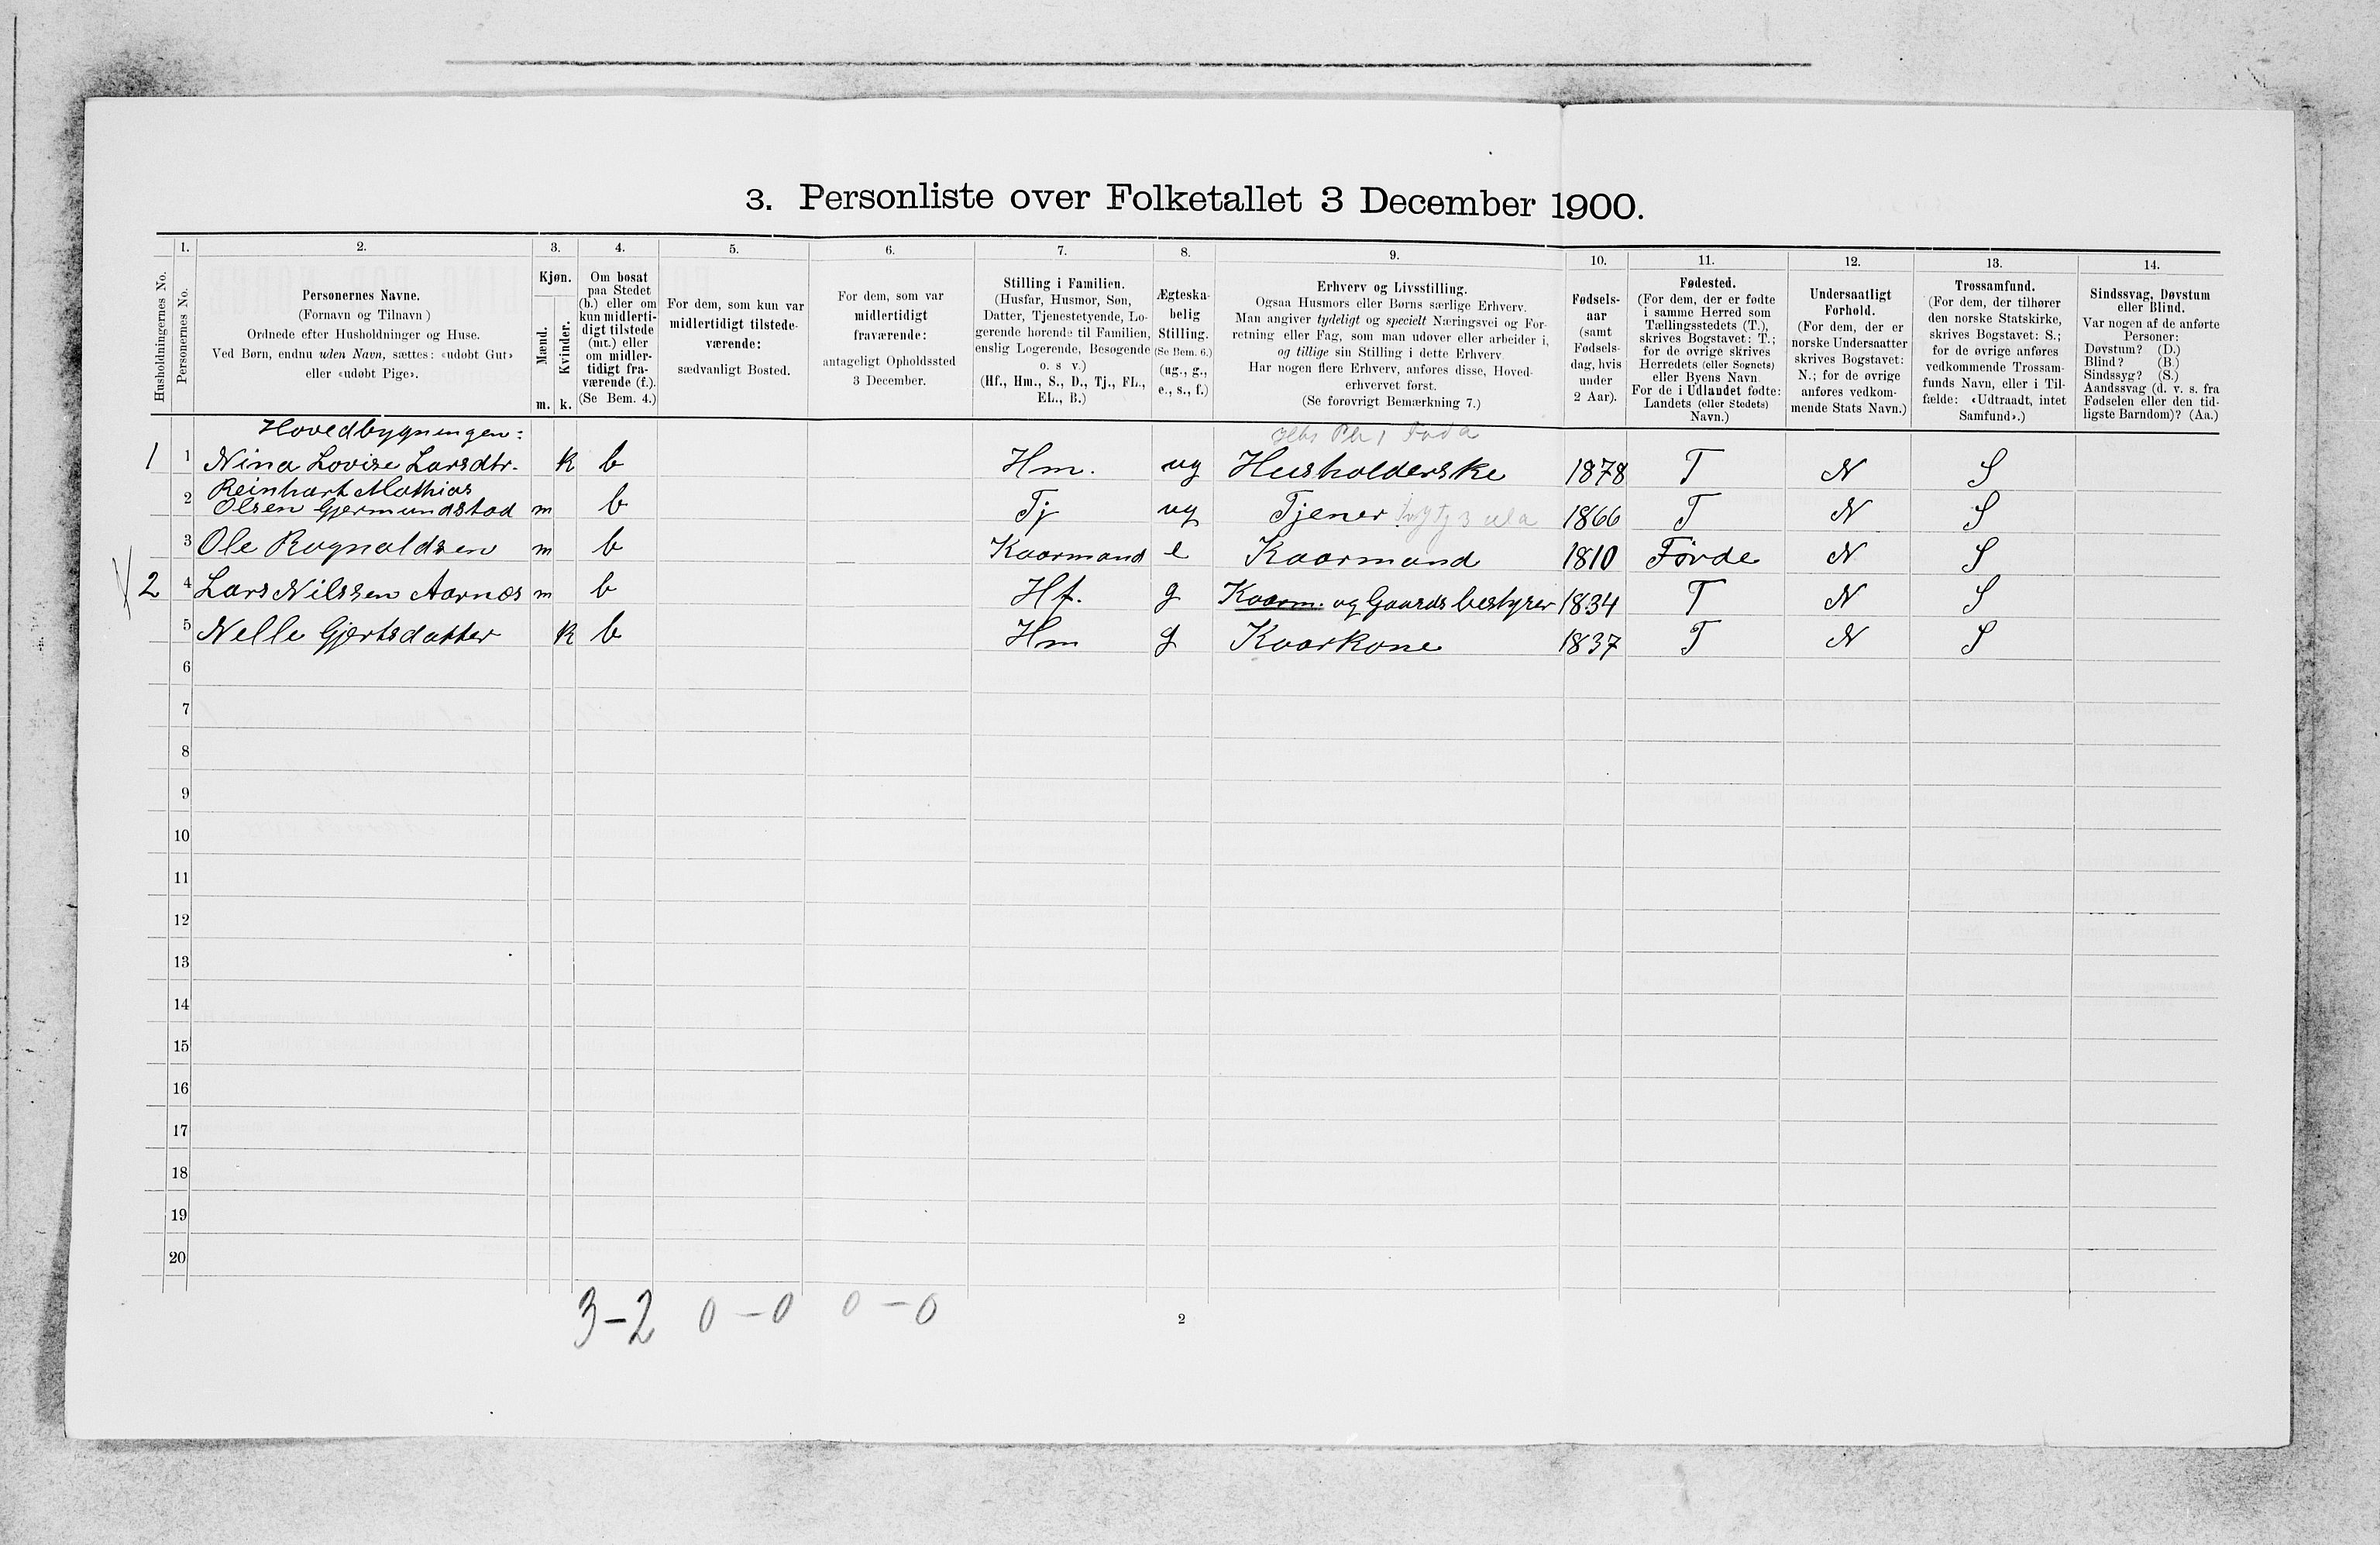 3. Personliste over Folketallet 3 December 1900.
1. 2. 3. 4. 5. 6. 7. 8. 9. 10. 11. 12. 13. 14.
Husholdningernes No.
Personernes No.
Personernes Navne.
(Fornavn og Tilnavn)
Ordnede efter Husholdninger og Huse.
Ved Børn, endnu uden Navn, sættes: «udøbt Gut»
eller «udøbt Pige».
Kjøn.
Mænd.
Kvinder.
m. k.
Om bosat
paa Stedet
(b.) eller om
kun midlerti-
digt tilstede
(mt.) eller
om midler-
tidigt fra-
værende (f.).
(Se Bem. 4.)
For dem, som kun var
midlertidigt tilstede-
værende:
sædvanligt Bosted.
For dem, som var
midlertidigt
fraværende:
antageligt Opholdssted
3 December.
Stilling i Familien.
(Husfar, Husmor, Søn,
Datter, Tjenestetyende, Lo-
gerende hørende til Familien,
enslig Logerende, Besøgende
o. s v.)
(Hf., Hm., S., D., Tj., FL.,
EL., B.)
Ægteska-
belig
Stilling.
(Se Bem. 6.)
(ug., g.,
e., s., f.)
Erhverv og Livsstilling.
Ogsaa Husmors eller Børns særlige Erhverv.
Man angiver tydeligt og specielt Næringsvei og For-
retning eller Fag, som man udøver eller arbeider i,
og tillige sin Stilling i dette Erhverv.
Har nogen flere Erhverv, anføres disse, Hoved-
erhvervet først.
(Se forøvrigt Bemærkning 7.)
Fødsels-
aar
(samt
Fødsels-
dag, hvis
under
2 Aar).
Fødested.
(For dem, der er fødte
i samme Herred som
Tællingsstedets (T.),
skrives Bogstavet: T.;
for de øvrige skrives
Herredets (eller Sognets)
eller Byens Navn.
For de i Udlandet fødte:
Landets (eller Stedets)
Navn.)
Undersaatligt
Forhold.
(For dem, der er
norske Undersaatter
skrives Bogstavet:
N.; for de øvrige
anføres vedkom-
mende Stats Navn.)
Trossamfund.
(For dem, der tilhører
den norske Statskirke,
skrives Bogstavet: S.;
for de øvrige anføres
vedkommende Trossam-
funds Navn, eller i Til-
fælde: «Udtraadt, intet
Samfund».)
Sindssvag, Døvstum
eller Blind.
Var nogen af de anførte
Personer:
Døvstum? (D.)
Blind? (B.)
Sindssyg? (S.)
Aandssvag (d. v. s. fra
Fødselen eller den tid-
ligste Barndom)? (Aa.)
Hovedbygningen:
1 1 Nina Lovise Larsdtr. k b Hm. ug Husholderske 1878 T N S
2 Reinhart Mathias
Olsen Gjermundstad m b Tj ug Tjener 1866 T N S
3 Ole Ragnaldsen m b Kaarmand e Kaarmand 1810 Førde N S
2 4 Lars Nilssen Aarnæs m b Hf. g Kaarm. og Gaardsbestyrer 1834 T N S
5 Nelle Gjertsdatter k b Hm g Kaarkone 1837 T N S
6
7
8
9
10
11
12
13
14
15
16
17
18
19
20
3-2 0-0 0-0
2